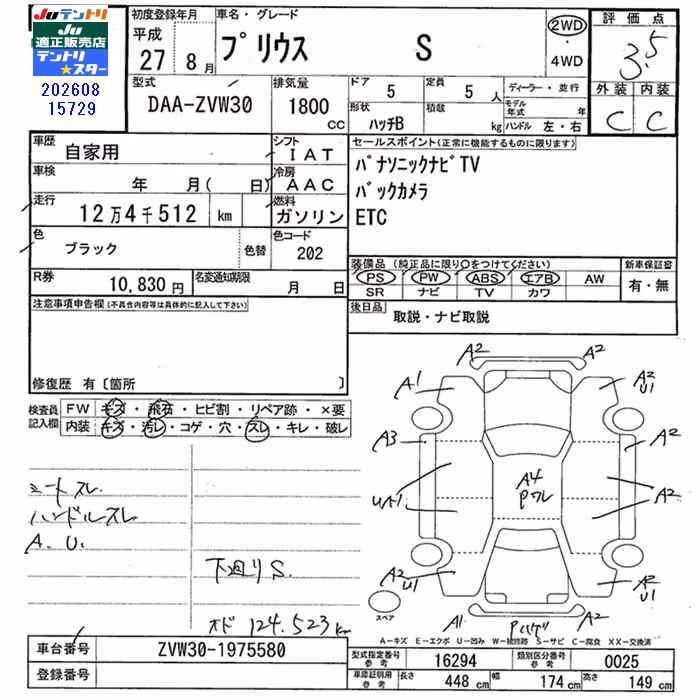 Juテントリ
Ju
適正販売店
テントリ
★スター
202608
15729
初度登録年月
平成
27年 8月
車名・グレード
プリウス S
2WD
・
4WD
評価点
3.5
外装 内装
C C
型式
DAA-ZVW30
排気量
1800
CC
ドア
5
定員
5人
ディーラー・並行
形状
ハッチB
積載
kg
モデル年式 年
ハンドル 左・右
車歴
自家用
シフト
IAT
車検
年 月( 日)
冷房
AAC
走行
12万4千512 km
燃料
ガソリン
色
ブラック
色替
色コード
202
R券
10,830円
名変通知期限
月 日
セールスポイント(正常に機能するものに限ります)
パナソニックナビTV
バックカメラ
ETC
装備品(純正品に限り○をつけてください)
新車保証書
PS PW ABS エアB AW
SR ナビ TV カワ
有・無
後日品
取説・ナビ取説
注意事項申告欄(不具合内容等は具体的に記入して下さい)
修復歴 有〔箇所 〕
検査員
記入欄
FW キズ・飛石・ヒビ割・リペア跡・×要
内装 キズ・汚レ・コゲ・穴・スレ・キレ・破レ
シートスレ
ハンドルスレ
A. U.
下廻りS.
オド 124.523km
A2 A2
A1 A2
U1
A3 A2
A4
Pワレ
UA1 A2
A2
U1 A2
U1
スペア
A1 Pハゲ A2
A-キズ E-エクボ U-凹み W-補修跡 S-サビ C-腐食 XX-交換済
車台番号
ZVW30-1975580
登録番号
型式指定番号
参考
16294
類別区分番号
参考
0025
車庫証明用
参考
長さ 448 cm
幅 174 cm
高さ 149 cm